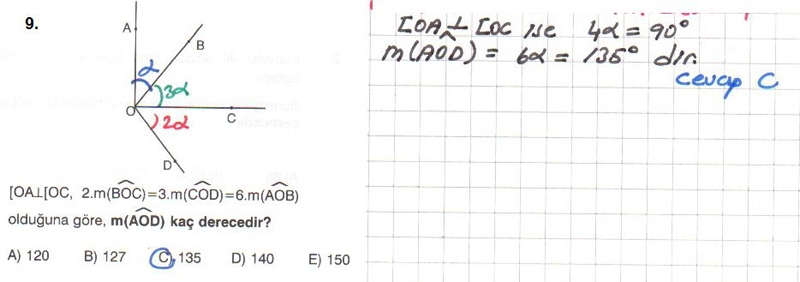 9.
A
B
α
3α
O
C
2α
D
[OA⊥[OC, 2.m(BOC)=3.m(COD)=6.m(AOB)
olduğuna göre, m(AOD) kaç derecedir?
A) 120 B) 127 C) 135 D) 140 E) 150
[OA ⊥ [OC ise 4α = 90°
m(AOD) = 6α = 135° dir.
cevap C